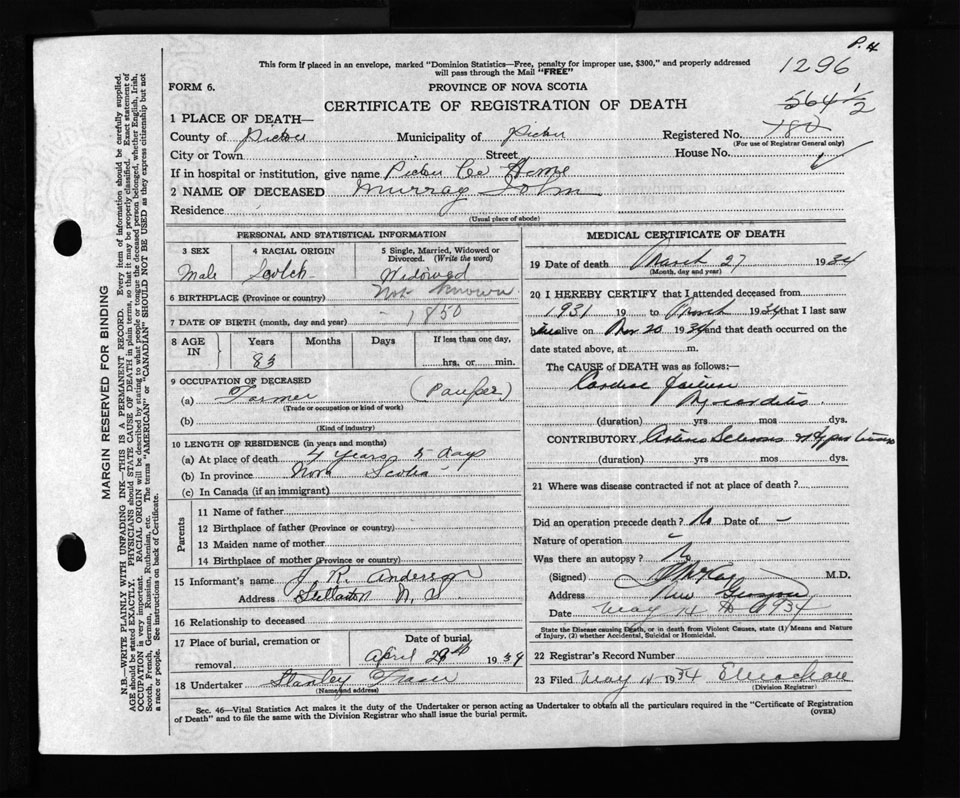 P. 4
This form if placed in an envelope, marked "Dominion Statistics—Free, penalty for improper use, $300," and properly addressed
will pass through the Mail "FREE"
1296
FORM 6.
PROVINCE OF NOVA SCOTIA
CERTIFICATE OF REGISTRATION OF DEATH
564 1/2
1 PLACE OF DEATH—
County of Pictou Municipality of Pictou Registered No. 180
(For use of Registrar General only)
City or Town Street House No.
If in hospital or institution, give name Pictou Co Home
2 NAME OF DECEASED Murray John
Residence
(Usual place of abode)
PERSONAL AND STATISTICAL INFORMATION
3 SEX 4 RACIAL ORIGIN 5 Single, Married, Widowed or
Divorced. (Write the word)
Male Scotch Widowed
6 BIRTHPLACE (Province or country) Not known
7 DATE OF BIRTH (month, day and year) - 1850
8 AGE IN Years Months Days If less than one day,
83 hrs. or min.
9 OCCUPATION OF DECEASED (Pauper)
(a) Farmer
(Trade or occupation or kind of work)
(b)
(Kind of industry)
10 LENGTH OF RESIDENCE (in years and months)
(a) At place of death 4 years 5 days
(b) In province Nova Scotia
(c) In Canada (if an immigrant)
Parents
11 Name of father
12 Birthplace of father (Province or country)
13 Maiden name of mother
14 Birthplace of mother (Province or country)
15 Informant's name J. R. Anderson
Address Stellarton N. S
16 Relationship to deceased
17 Place of burial, cremation or Date of burial,
removal April 29th 1934
18 Undertaker Stanley Fraser
(Name and address)
MEDICAL CERTIFICATE OF DEATH
19 Date of death March 27 1934
(Month, day and year)
20 I HEREBY CERTIFY that I attended deceased from
1931 19 to March 1934 that I last saw
alive on Mar 20 1934 and that death occurred on the
date stated above, at m.
The CAUSE OF DEATH was as follows:—
Cardiac Failure
Myocarditis
(duration) yrs mos. dys.
CONTRIBUTORY Arterio Sclerosis
(duration) yrs mos. dys.
21 Where was disease contracted if not at place of death?
Did an operation precede death? No Date of -
Nature of operation -
Was there an autopsy? No
(Signed) McKay M.D.
Address New Glasgow
Date May 4th 1934
State the Disease causing Death, or in death from Violent Causes, state (1) Means and Nature
of Injury, (2) whether Accidental, Suicidal or Homicidal.
22 Registrar's Record Number
23 Filed May 4 1934
(Division Registrar)
Sec. 46—Vital Statistics Act makes it the duty of the Undertaker or person acting as Undertaker to obtain all the particulars required in the "Certificate of Registration
of Death" and to file the same with the Division Registrar who shall issue the burial permit. (OVER)
MARGIN RESERVED FOR BINDING
N.B.—WRITE PLAINLY WITH UNFADING INK—THIS IS A PERMANENT RECORD. Every item of information should be carefully supplied.
AGE should be stated EXACTLY. PHYSICIANS should STATE CAUSE OF DEATH in plain terms, so that it may be properly classified. Exact statement of
OCCUPATION is very important. RACIAL ORIGIN will be described by stating to what people or tongue the deceased person belonged, whether English, Irish,
Scotch, French, German, Russian, Ruthenian, etc. The terms "AMERICAN" or "CANADIAN" SHOULD NOT BE USED as they express citizenship but not
a race or people. See instructions on back of Certificate.